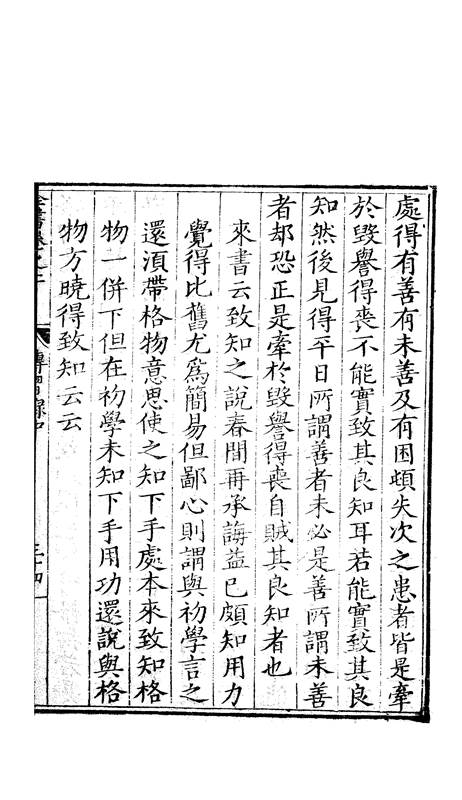 處得有善有未善及有困頓失次之患者皆是牽
於毀譽得喪不能實致其良知耳若能實致其良
知然後見得平日所謂善者未必是善所謂未善
者却恐正是牽於毀譽得喪自賊其良知者也
來書云致知之說春間再承誨益已頗知用力
覺得比舊尤爲簡易但鄙心則謂與初學言之
還湏帶格物意思使之知下手處本來致知格
物一併下但在初學未知下手用功還說與格
物方曉得致知云云
傳習錄中
三十四